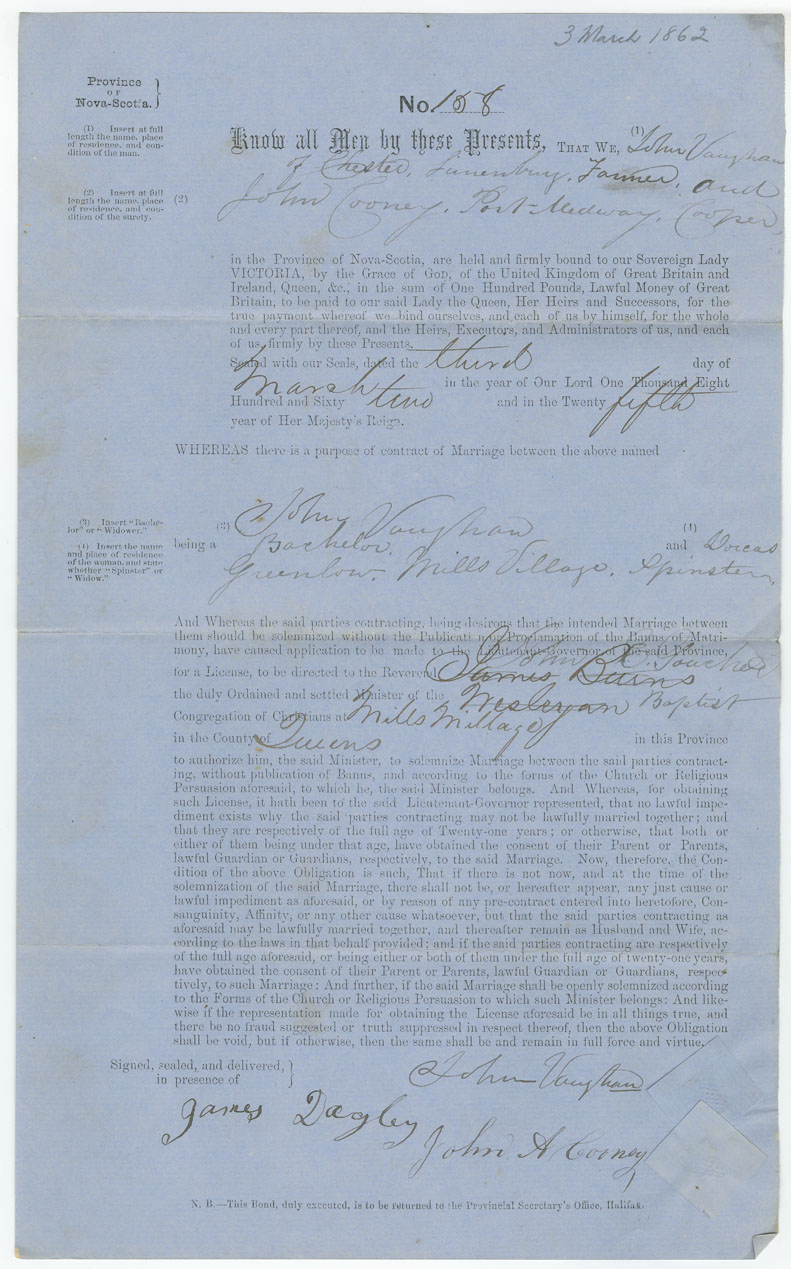 3 March 1862
Province
OF
Nova-Scotia.
No. 158
(1) Insert at full
length the name, place
of residence, and con-
dition of the man.
Know all Men by these Presents, THAT WE, (1) John Vaughan
of Chester, Lunenburg, Farmer, and
(2) Insert at full
length the name, place
of residence, and con-
dition of the surety.
(2) John Cooney, Port-Medway, Cooper,
in the Province of Nova-Scotia, are held and firmly bound to our Sovereign Lady
VICTORIA, by the Grace of GOD, of the United Kingdom of Great Britain and
Ireland, Queen, &c., in the sum of One Hundred Pounds, Lawful Money of Great
Britain, to be paid to our said Lady the Queen, Her Heirs and Successors, for the
true payment whereof we bind ourselves, and each of us by himself, for the whole
and every part thereof, and the Heirs, Executors, and Administrators of us, and each
of us, firmly by these Presents.
Sealed with our Seals, dated the third day of
March in the year of Our Lord One Thousand Eight
Hundred and Sixty two and in the Twenty fifth
year of Her Majesty's Reign.
WHEREAS there is a purpose of contract of Marriage between the above named
(3) Insert "Bache-
lor" or "Widower."
(3) John Vaughan
(4) Insert the name
and place of residence
of the woman, and state
whether "Spinster" or
"Widow."
being a Bachelor and (4) Dorcas
Greenlow, Mills Village, Spinster,
And Whereas the said parties contracting, being desirous that the intended Marriage between
them should be solemnized without the Publication or Proclamation of the Banns of Matri-
mony, have caused application to be made to the Lieutenant-Governor of the said Province,
John
for a License, to be directed to the Reverend James Burns
the duly Ordained and settled Minister of the Wesleyan Baptist
Congregation of Christians at Mills Village
in the County of Queens in this Province
to authorize him, the said Minister, to solemnize Marriage between the said parties contract-
ing, without publication of Banns, and according to the forms of the Church or Religious
Persuasion aforesaid, to which he, the said Minister belongs. And Whereas, for obtaining
such License, it hath been to the said Lieutenant-Governor represented, that no lawful impe-
diment exists why the said parties contracting may not be lawfully married together; and
that they are respectively of the full age of Twenty-one years; or otherwise, that both or
either of them being under that age, have obtained the consent of their Parent or Parents,
lawful Guardian or Guardians, respectively, to the said Marriage. Now, therefore, the Con-
dition of the above Obligation is such, That if there is not now, and at the time of the
solemnization of the said Marriage, there shall not be, or hereafter appear, any just cause or
lawful impediment as aforesaid, or by reason of any pre-contract entered into heretofore, Con-
sanguinity, Affinity, or any other cause whatsoever, but that the said parties contracting as
aforesaid may be lawfully married together, and thereafter remain as Husband and Wife, ac-
cording to the laws in that behalf provided; and if the said parties contracting are respectively
of the full age aforesaid, or being either or both of them under the full age of twenty-one years,
have obtained the consent of their Parent or Parents, lawful Guardian or Guardians, respec-
tively, to such Marriage: And further, if the said Marriage shall be openly solemnized according
to the Forms of the Church or Religious Persuasion to which such Minister belongs: And like-
wise if the representation made for obtaining the License aforesaid be in all things true, and
there be no fraud suggested or truth suppressed in respect thereof, then the above Obligation
shall be void, but if otherwise, then the same shall be and remain in full force and virtue.
Signed, sealed, and delivered,
in presence of
John Vaughan
James Dagley
John A Cooney
N. B.—This Bond, duly executed, is to be returned to the Provincial Secretary's Office, Halifax.